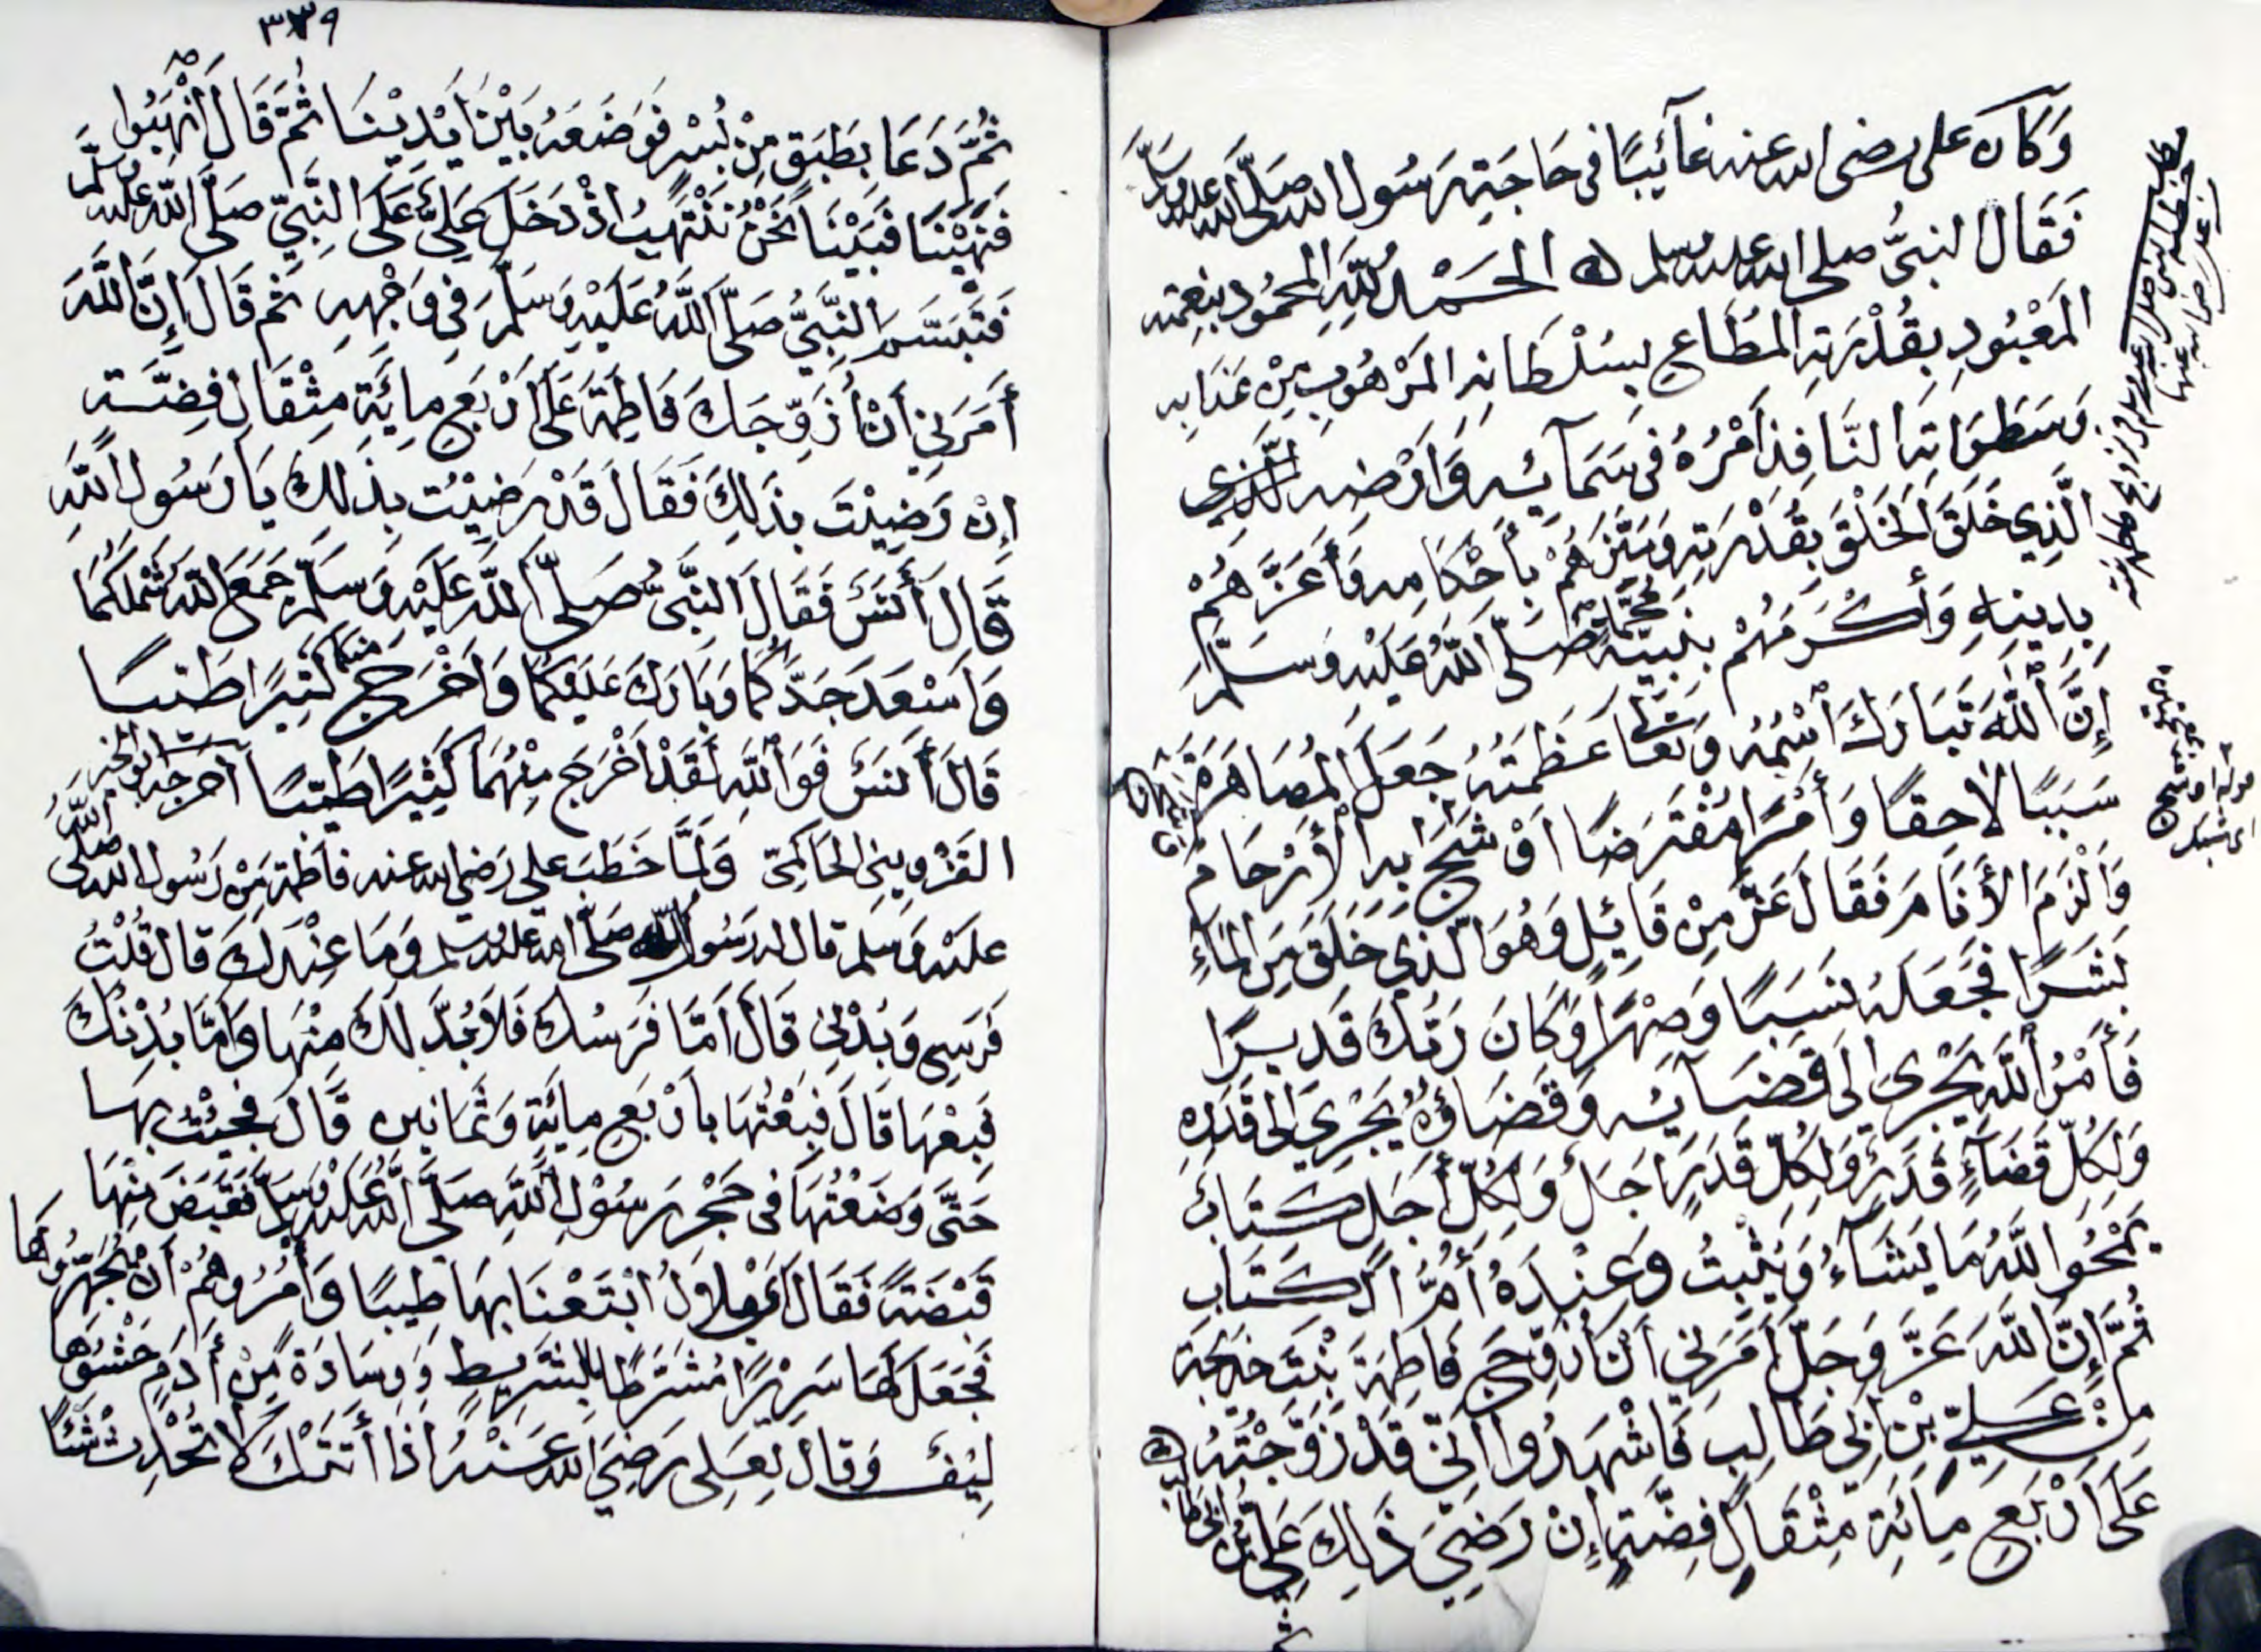 وَكَان على رضى الله عنه غَآئِبًا فى حَاجَةِ رَسُول الله صَلَّى الله عليه وسلم
فَقَالَ النبىُّ صلى الله عليه وسلم الحَمْدُ لِلَّهِ المَحْمُودِ بنِعْمَتِه
المَعْبُودِ بِقُدْرَتِهِ المُطَاعِ بِسُلْطَانِهِ المَرْهُوبِ مِنْ عَذَابِه
وَسَطَوَاتِهِ النَّافِذِ أَمْرُهُ فى سَمَآئِه وَأَرْضِه
الَّذِي خَلَقَ الخَلْقَ بِقُدْرَتِهِ وَمَيَّزَهُمْ بأَحْكَامِه وَأَعَزَّهُمْ
بِدِينِهِ وَأَكْرَمَهُمْ بِنَبِيِّه مُحَمَّد صَلَّى اللَّهُ عَلَيْه وَسَلَّمَ
إِنَّ اللَّهَ تَبَارَكَ اسْمُهُ وَتَعَالَى عَظَمَتُهُ جَعَلَ المُصَاهَرَةَ
سَبَبًا لَاحِقًا وَأَمْرًا مُفْتَرَضًا اَوْشَجَ بِهِ الْأَرْحَامَ
وَأَلْزَمَ الأَنَامَ فَقَالَ عَزَّ مِنْ قَائِلٍ وَهُوَ الَّذِي خَلَقَ مِنَ المَاءِ
بَشَرًا فَجَعَلَهُ نَسَبًا وَصِهْرًا وَكَانَ رَبُّكَ قَدِيرًا
فَأَمْرُ اللَّهِ يَجْرِى إِلَى قَضَآئِه وَقَضَاؤُهُ يَجْرِي إلى قَدَرِهِ
وَلِكُلِّ قَضَآءٍ قَدَرٌ وَلِكُلِّ قَدَرٍ أَجَلٌ وَلِكُلِّ أَجَلٍ كِتَابٌ
يَمْحُوا اللَّهُ مَا يَشَآءُ وَيُثْبِتُ وَعِنْدَهُ أُمُّ الكِتَابِ
ثُمَّ إِنَّ اللَّهَ عَزَّ وَجَلَّ أَمَرَنِي أَنْ أُزَوِّجَ فَاطِمَةَ بِنْتَ خَدِيجَةَ
مِنْ عَلِيِّ بْنِ أَبِي طَالِبٍ فَاشْهَدُوا إِنِّى قَدْ زَوَّجْتُهُ
عَلَى أَرْبَعِ مِائَةِ مِثْقَالٍ فِضَّةٍ إِنْ رَضِيَ ذَلِكَ عَلِيُّ بْنُ أبي طالب
٣٣٩
ثُمَّ دَعَا بِطَبَقٍ مِنْ بُسْرٍ فَوَضَعَهُ بَيْنَ أَيْدِيْنَا ثُمَّ قَالَ انْهَبُوا
فَنَهَبْنَا فَبَيْنَا نَحْنُ نَنْتَهِبُ اذْ دَخَلَ عَلِيٌّ عَلَى النَّبِيِّ صَلَّى اللَّهُ عليه وسلَّم
فَتَبَسَّمَ النَّبِيُّ صَلَّى اللَّهُ عَلَيْهِ وَسَلَّمَ فِي وَجْهِهِ ثُمَّ قَالَ إِنَّ اللَّهَ
أَمَرَنِي أَنْ أُزَوِّجَكَ فَاطِمَةَ عَلَى أَرْبَعِ مِائَةِ مِثْقَالِ فِضَّةٍ
إِنْ رَضِيْتَ بِذَلِكَ فَقَالَ قَدْ رَضِيْتُ بِذَلِكَ يَا رَسُولَ اللَّهِ
قَالَ أَنَسٌ فَقَالَ النَّبِيُّ صَلَّى اللَّهُ عَلَيْهِ وَسَلَّمَ جَمَعَ اللَّهُ شَمْلَكُمَا
وَأَسْعَدَ جَدَّكُمَا وَبَارَكَ عَلَيْكُمَا وَأَخْرَجَ مِنْكُمَا كَثِيرًا طَيِّبًا
قَالَ أَنَسٌ فَوَاللَّهِ لَقَدْ أَخْرَجَ مِنْهُمَا كَثِيرًا طَيِّبًا أخرجه أبو الخير
القَزْوِينِى الحَاكِمِيّ وَلَمَّا خَطَبَ علي رَضِىَ الله عنه فاطِمَة مِنْ رَسُول الله صلَّى اللَّهُ
عليْه وَسَلم قال له رَسُولُ اللَّه صَلَّى الله عليه وسلم وَمَا عِنْدَكَ قال قُلْتُ
فَرَسِي وَبُدْنِي قَالَ أَمَّا فَرَسُكَ فَلَا بُدَّ لَكَ مِنْهَا وَأَمَّا بُدْنُكَ
فَبِعْهَا قَالَ فَبِعْتُهَا بِأَرْبَعِ مِائَةٍ وَثَمَانِين قَالَ فَجِئْتُ بِهَا
حَتَّى وَضَعْتُهَا فى حَجْرِ رَسُوْلِ اللَّهِ صَلَّى اللَّهُ عَلَيْه وَسَلَّم فَقَبَضَ مِنْهَا
قَبْضَةً فَقَالَ يَا بِلَالُ ابْتَعْنَا بِهَا طِيبًا وَأَمَرُوهُمْ أَنْ يُجَهِّزُوهَا
فَجَعَلَ لَهَا سَرِيْرًا مُشَرَّطًا بِالشَّرِيطِ وَوِسَادَةً مِنْ أَدَمٍ حَشْوُهَا
لِيْفٌ وَقَالَ لِعَلِي رَضِيَ اللهُ عَنْهُ إِذَا أَتَتْكَ لَا تُحْدِثْ شَيْئًا